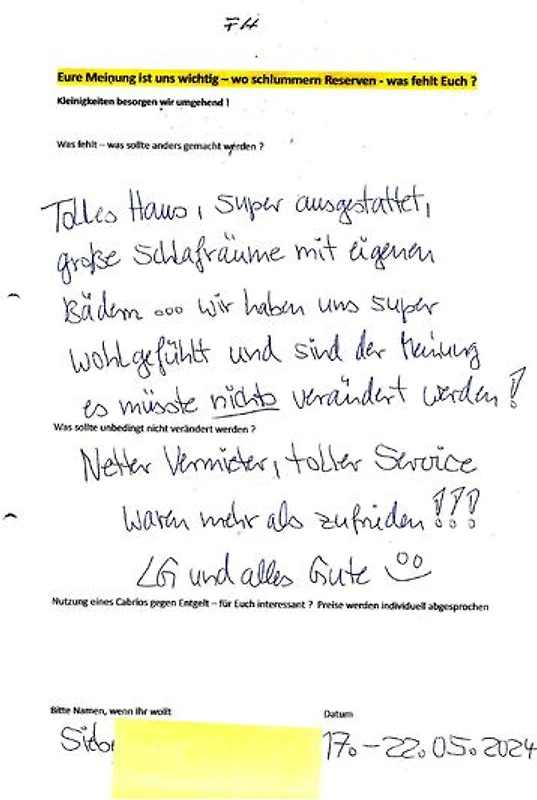 FH
Eure Meinung ist uns wichtig – wo schlummern Reserven - was fehlt Euch ?
Kleinigkeiten besorgen wir umgehend !
Was fehlt – was sollte anders gemacht werden ?
Tolles Haus, super ausgestattet,
große Schlafräume mit eigenen
Bädern ... wir haben uns super
wohlgefühlt und sind der Meinung
es müsste nichts verändert werden !
Was sollte unbedingt nicht verändert werden ?
Netter Vermieter, toller Service
Waren mehr als zufrieden !!!
LG und alles Gute
Nutzung eines Cabrios gegen Entgelt – für Euch interessant ? Preise werden individuell abgesprochen
Bitte Namen, wenn ihr wollt
Datum
17.-22.05.2024